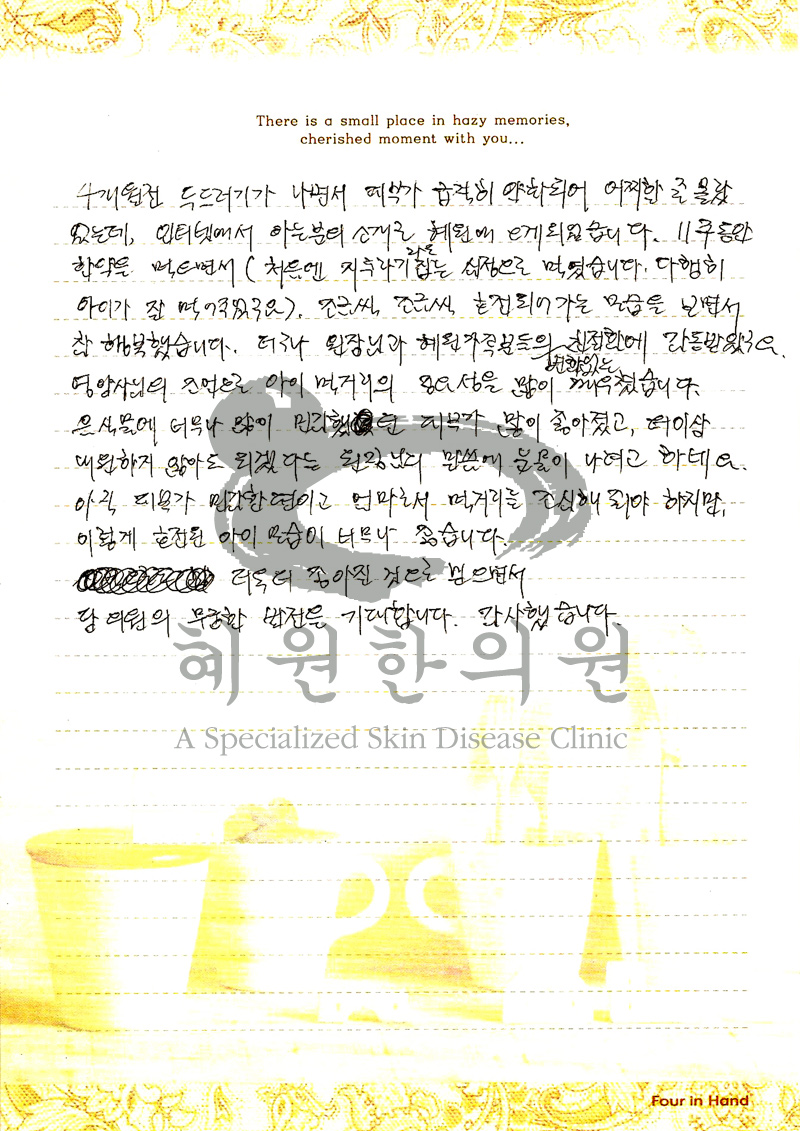 There is a small place in hazy memories,
cherished moment with you...
4개월전 두드러기가 나면서 피부가 급격히 악화되어 어찌할 줄 몰랐
었는데, 인터넷에서 아는분의 소개로 혜원에 오게되었습니다. 11주동안
한약을 먹으면서 (처음엔 지푸라기라도 잡는 심정으로 먹였습니다. 다행히
아이가 잘 먹어주었구요). 조금씩 조금씩 호전되어가는 모습을 보면서
참 행복했습니다. 더구나 원장님과 혜원가족분들의 변함없는 친절함에 감동받았구요.
영양사님의 조언으로 아이 먹거리의 중요성을 많이 깨우쳤습니다.
음식물에 너무나 많이 민감했던 피부가 많이 좋아졌고, 더이상
내원하지 않아도 되겠다는 원장님의 말씀에 눈물이 나려고 하네요.
아직 피부가 민감한편이고 먹거리를 조심해 줘야 하지만,
이렇게 호전된 아이 모습이 너무나 좋습니다.
더욱더 좋아질 것으로 믿으면서
당 의원의 무궁한 발전을 기대합니다. 감사했습니다.
혜원한의원
A Specialized Skin Disease Clinic
Four in Hand